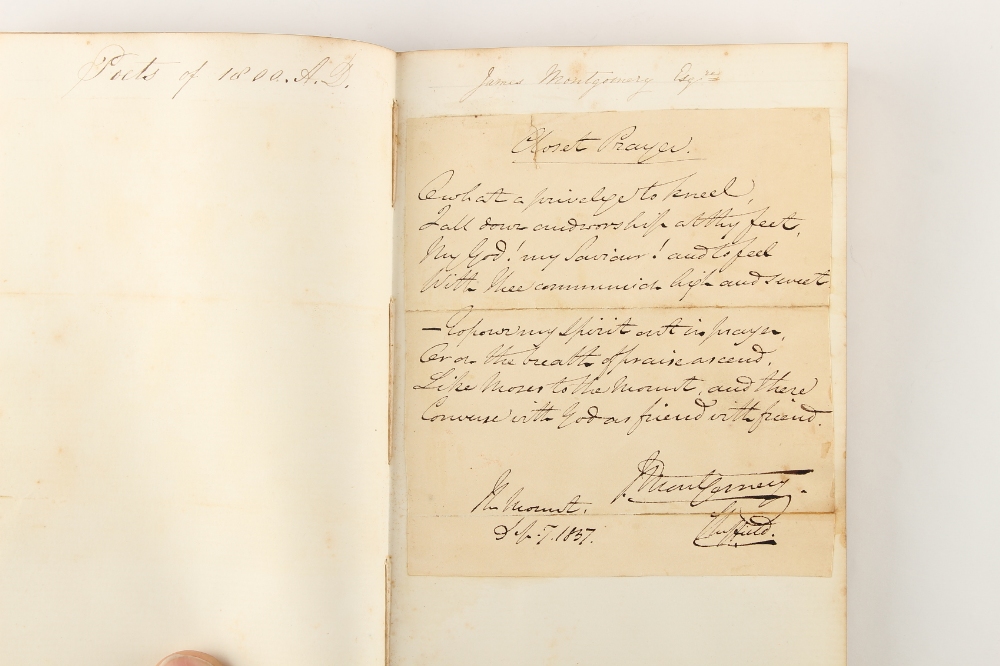 Poets of 1800. A.D.
James Montgomery Esq.re
Closet Prayer.
O what a privelege to kneel,
Fall down and worship at thy feet,
My God! my Saviour! and to feel
With Thee communion high and sweet
— To pour my spirit out in prayer,
Or on the breath of praise ascend,
Like Moses to the Mount, and there
Converse with God as friend with friend.
J. Montgomery.
The Mount.
Sheffield.
Sep. 7. 1837.